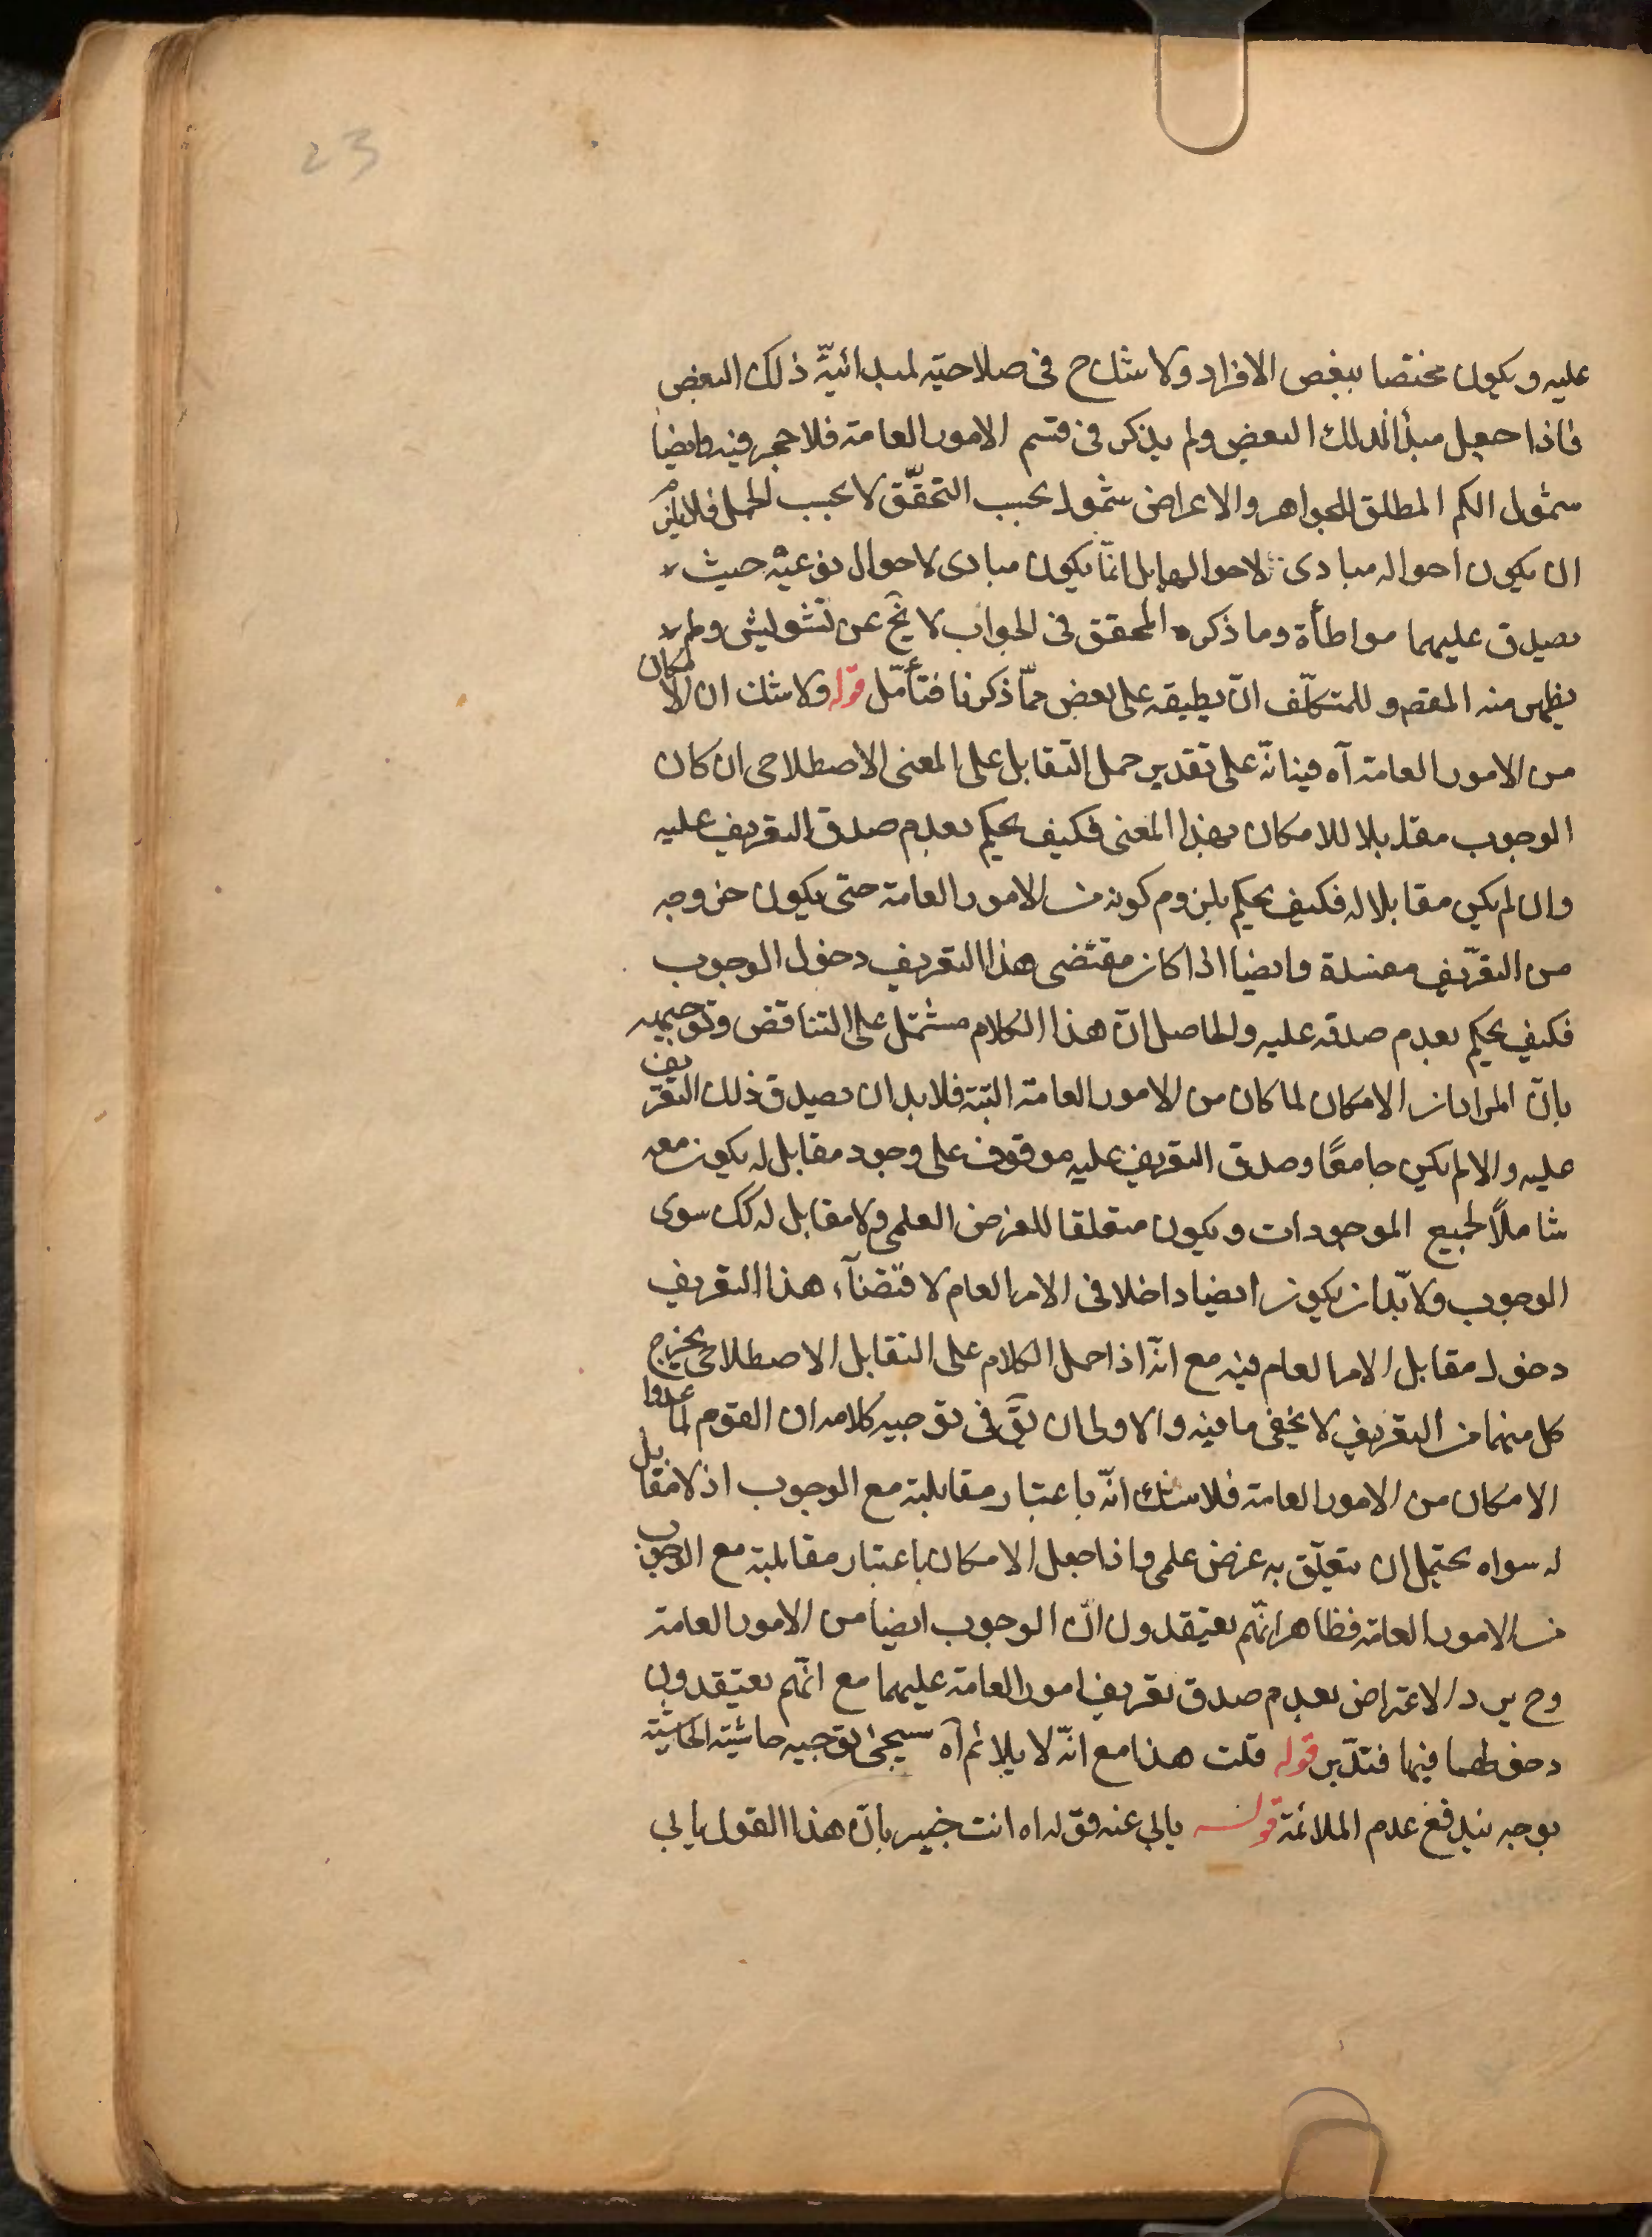 23
عليه ويكون مختصا ببعض الافراد ولا شك ح فى صلاحيته لمبدائيّة ذلك البعض
فاذا جعل مبدأ لذلك البعض ولم يذكر فى قسم الامور العامة فلا حجر فيه وايضا
شمول الكم المطلق للجواهر والاعراض شمول بحسب التحقّق لا بحسب الحمل فلا يلزم
ان يكون احواله مبادى لاحوالها بل انّما يكون مبادى لاحوال نوعيّة حيث لا
يصدق عليهما مواطأة وما ذكره المحقق فى الجواب لا يخ عن تشويش ولم لا
يظهر منه المقصو وللمتكلّف ان يطبقه على بعض ممّا ذكرنا فتأمّل قوله ولا شك ان الامكان
من الامور العامة آه فيه انّه على تقدير حمل التقابل على المعنى الاصطلاحى ان كان
الوجوب مقابلا للامكان بهذا المعنى فكيف يحكم بعدم صدق التعريف عليه
وان لم يكن مقابلا له فكيف يحكم بلزوم كونه من الامور العامة حتى يكون خروجه
من التعريف مفسدة وايضا اذا كان مقتضى هذا التعريف دخول الوجوب
فكيف يحكم بعدم صدقه عليه والحاصل انّ هذا الكلام مشتمل على التناقض وتوجيهه
بانّ المراد ان الامكان لما كان من الامور العامة البتة فلا بد ان يصدق ذلك التعريف
عليه والا لم يكن جامعًا وصدق التعريف عليه موقوف على وجود مقابل له يكون معه
شاملاً لجميع الموجودات ويكون متعلقا للغرض العلمى ولا مقابل له كك سوى
الوجوب ولا بّد ان يكون ايضا داخلا فى الامر العام لاقتضآء هذا التعريف
دخول مقابل الامر العام فيه مع انّه اذا حمل الكلام على التقابل الاصطلاحى يخرج
كل منهما من التعريف لا يخفى ما فيه والاولى ان يقَ فى توجيه كلامه ان القوم لما عدوا
الامكان من الامور العامة فلا شك انّه باعتبار مقابلته مع الوجوب اذ لا مقابل
له سواه يحتمل ان يتعلّق به غرض علمى واذا جعل الامكان باعتبار مقابلته مع الوجوب
من الامور العامة فظاهر انّهم يعتقدون انّ الوجوب ايضا من الامور العامة
وح يرد الاعتراض بعدم صدق تعريف امور العامة عليهما مع انّهم يعتقدون
دخولهما فيها فتدّبر قوله قلت هذا مع انّه لا يلائم آه سيجئ توجيه حاشية الحاشية
بوجه يندفع عدم الملائمة قوله يابى عنه قوله اه انت خبير بانّ هذا القول يابى